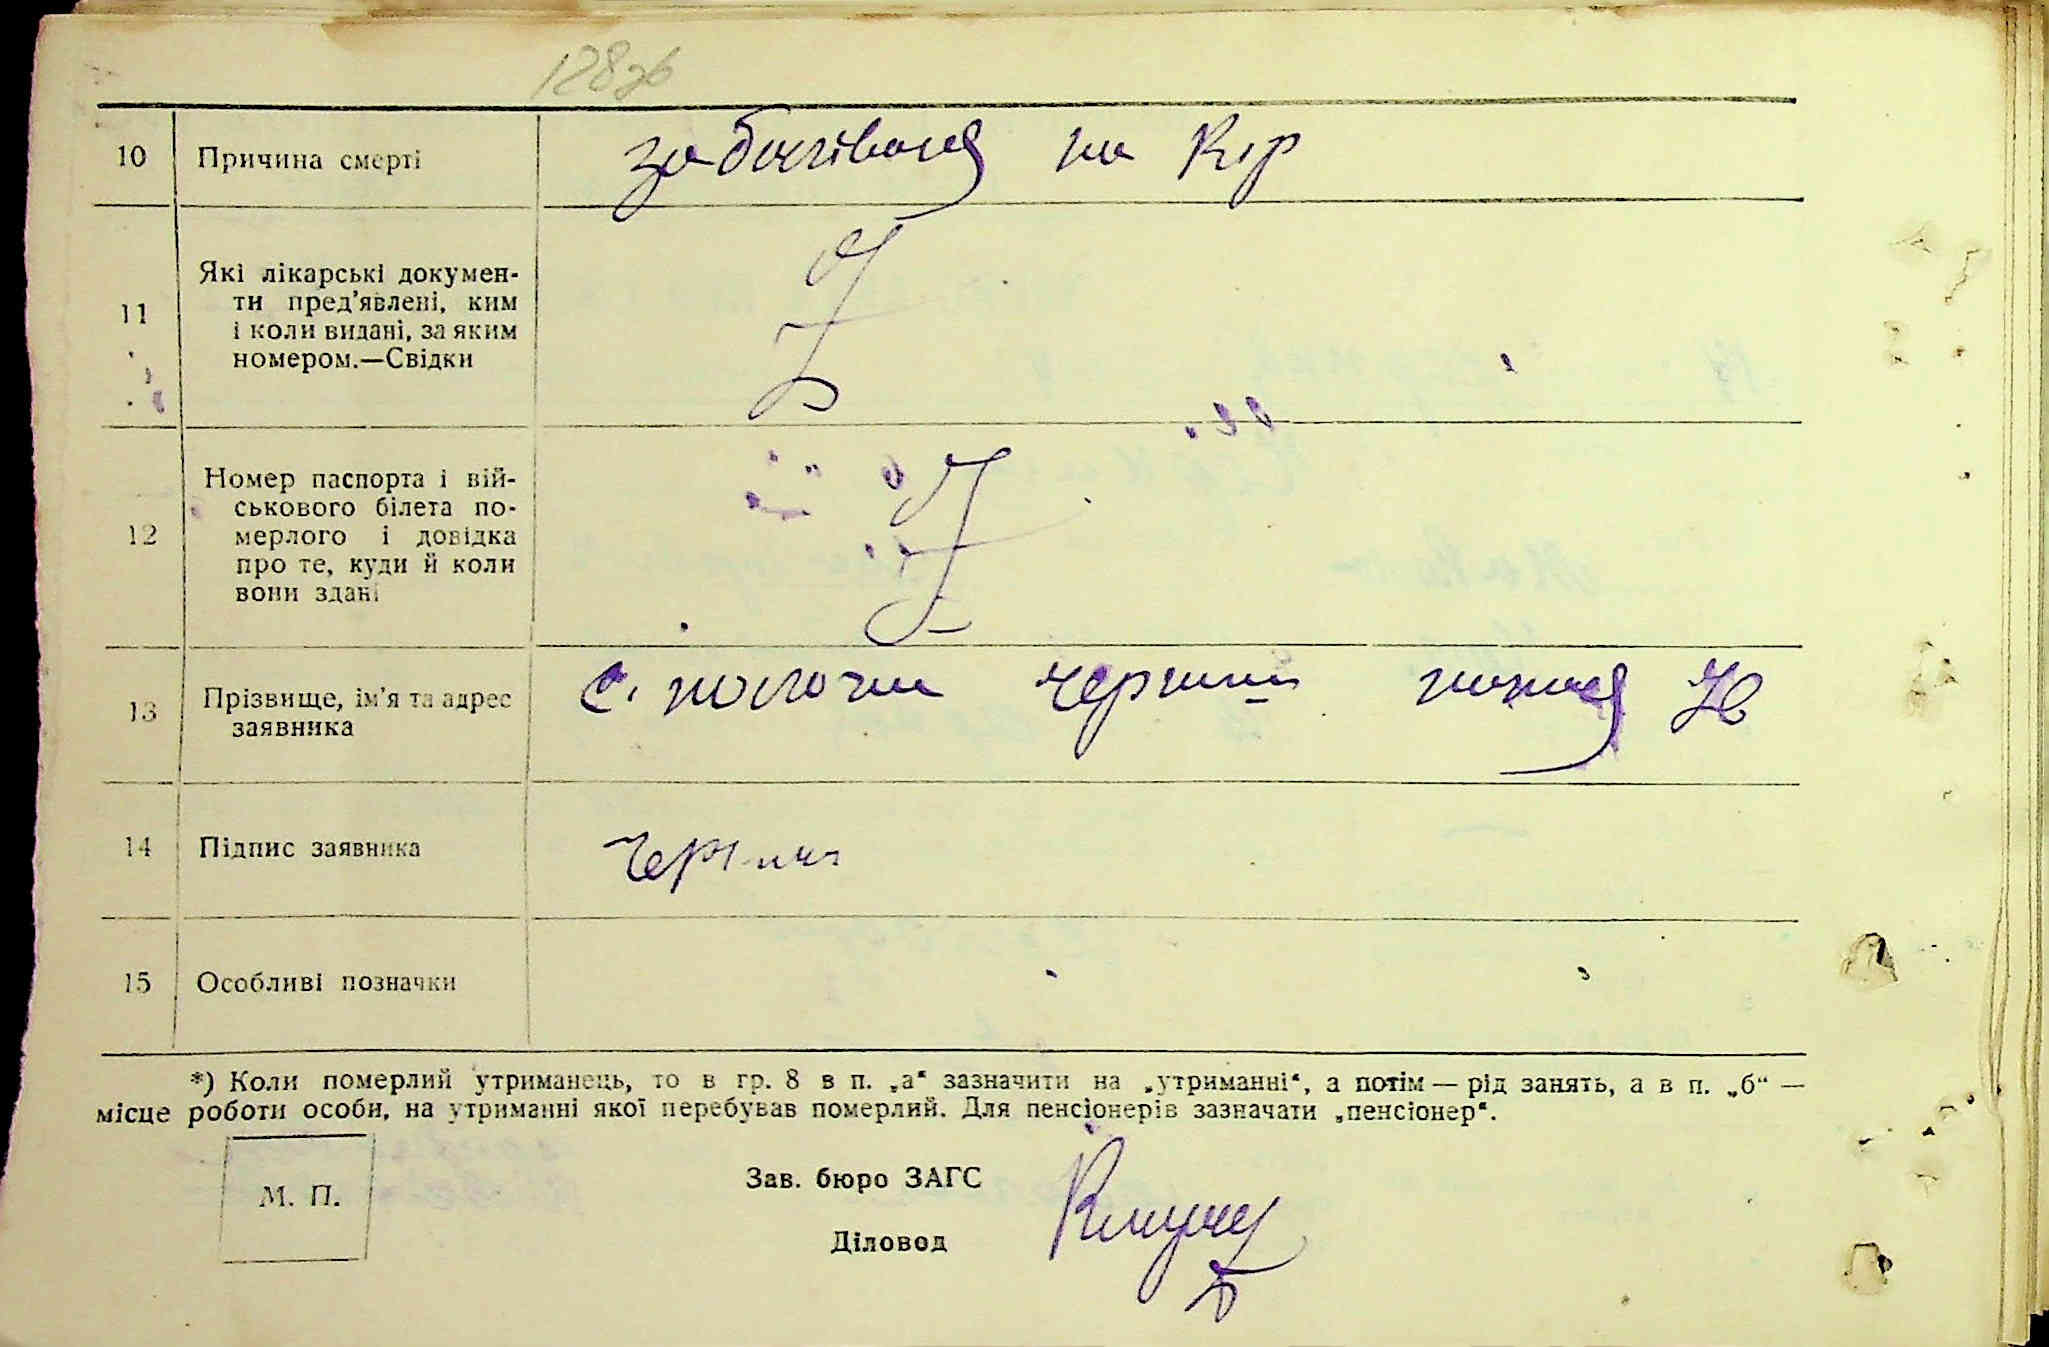 128зв
10 Причина смерті заболівання на кір
11 Які лікарські докумен-
ти пред'явлені, ким
і коли видані, за яким
номером.—Свідки
12 Номер паспорта і вій-
ськового білета по-
мерлого і довідка
про те, куди й коли
вони здані
13 Прізвище, ім'я та адрес
заявника
с.
14 Підпис заявника
15 Особливі позначки
*) Коли померлий утриманець, то в гр. 8 в п. „а“ зазначити на „утриманні“, а потім — рід занять, а в п. „б“ —
місце роботи особи, на утриманні якої перебував померлий. Для пенсіонерів зазначати „пенсіонер“.
М. П.
Зав. бюро ЗАГС
Діловод